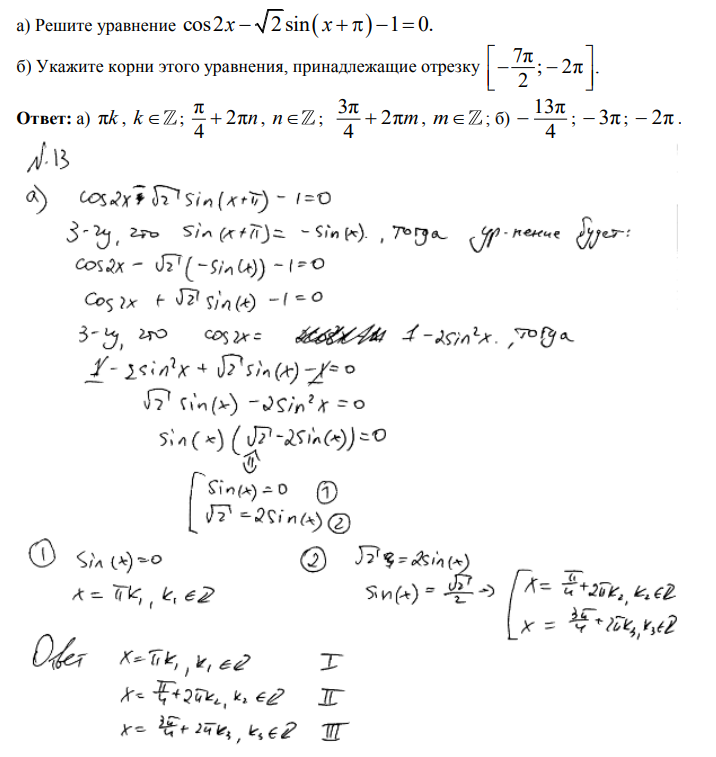 а) Решите уравнение cos2x − √2 sin(x + π) − 1 = 0.
б) Укажите корни этого уравнения, принадлежащие отрезку [−7π/2; −2π].
Ответ: а) πk, k ∈ ℤ; π/4 + 2πn, n ∈ ℤ; 3π/4 + 2πm, m ∈ ℤ; б) −13π/4; −3π; −2π.
N.13
а) cos2x − √2 sin(x+π) − 1=0
З-чу, что sin(x+π)= −sin(x)., тогда ур-нение будет:
cos2x − √2 (−sin(x)) −1=0
cos2x + √2 sin(x) −1=0
З-чу, что cos2x= 1−2sin²x., тогда
1 − 2sin²x + √2 sin(x) −1=0
√2 sin(x) −2sin²x =0
sin(x) (√2 −2sin(x))=0
⇕
[ sin(x)=0 ①
√2 =2sin(x) ②
① sin(x)=0 ② √2 =2sin(x)
x = πk₁, k₁∈Z sin(x) = √2/2 → [ x= π/4 + 2πk₂, k₂∈Z
x = 3π/4 + 2πk₃, k₃∈Z
Ответ x=πk₁, k₁∈Z I
x= π/4 + 2πk₂, k₂∈Z II
x= 3π/4 + 2πk₃, k₃∈Z III